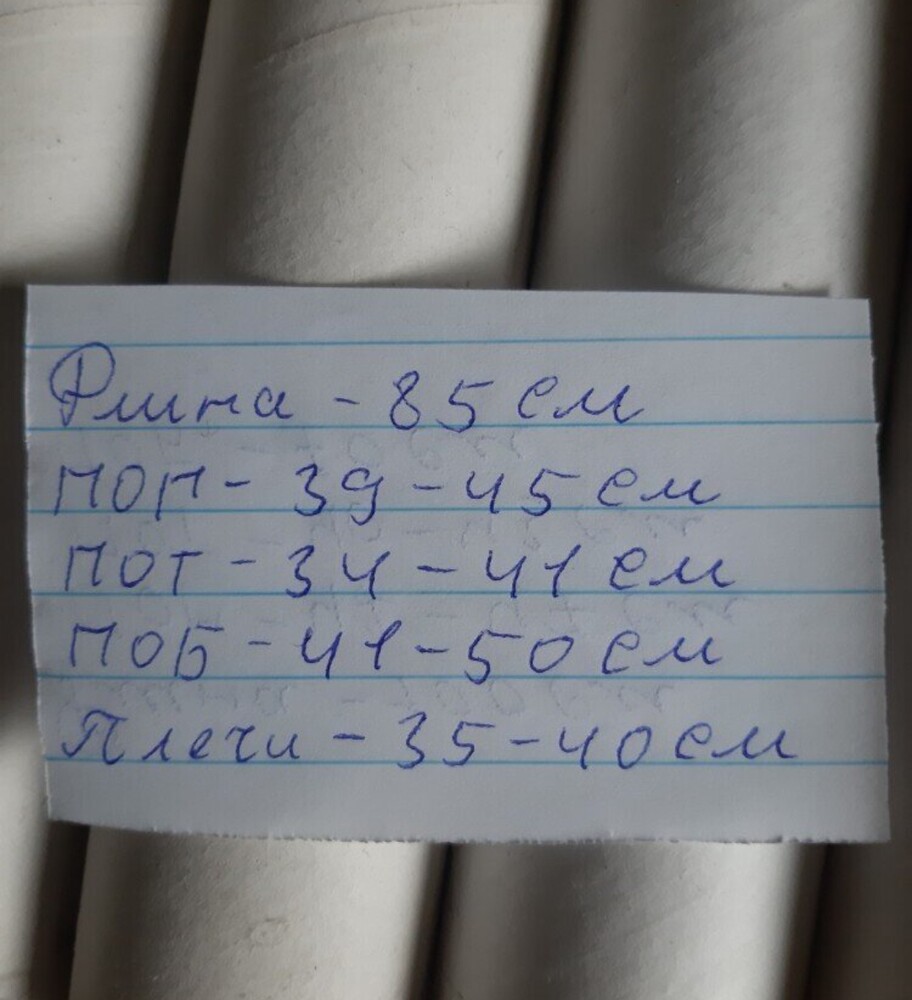 Длина - 85 см
ПОП - 39 - 45 см
ПОТ - 34 - 41 см
ПОБ - 41 - 50 см
Плечи - 35 - 40 см